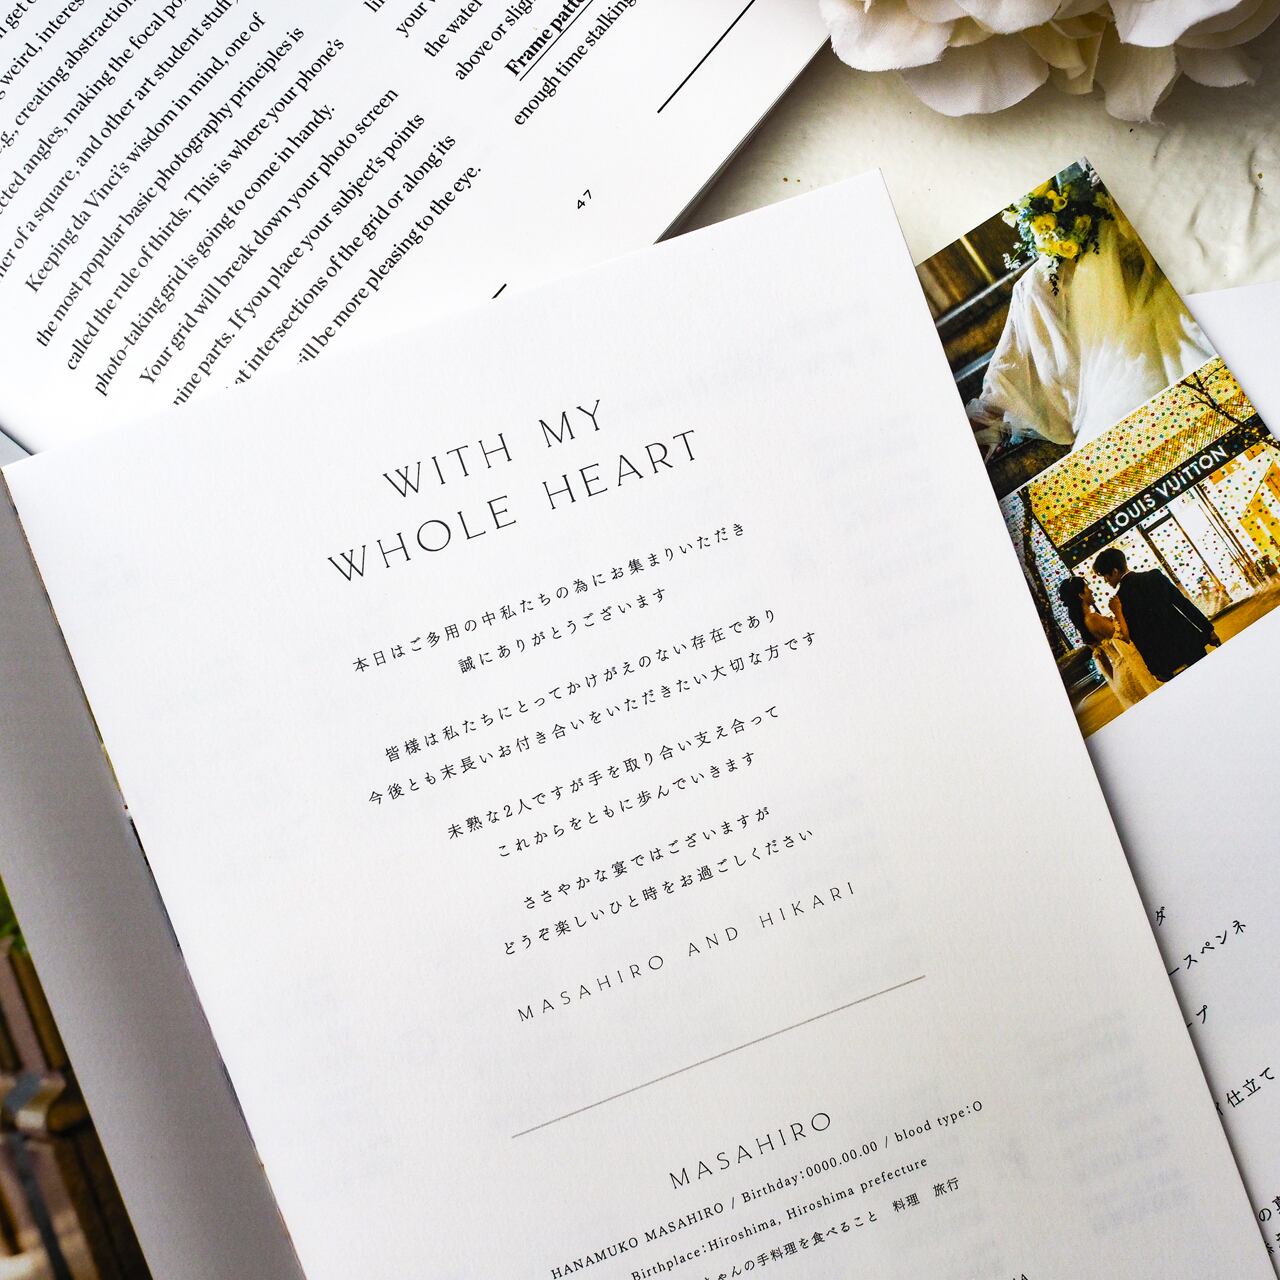 weird, interes
e.g., creating abstraction
cted angles, making the focal po
ner of a square, and other art student stuff
Keeping da Vinci's wisdom in mind, one of
the most popular basic photography principles is
called the rule of thirds. This is where your phone's
photo-taking grid is going to come in handy.
Your grid will break down your photo screen
nine parts. If you place your subject's points
at intersections of the grid or along its
ill be more pleasing to the eye.
your
the water
above or sligh
Frame patte
enough time stalking
47
WITH MY
WHOLE HEART
本日はご多用の中私たちの為にお集まりいただき
誠にありがとうございます
皆様は私たちにとってかけがえのない存在であり
今後とも末長いお付き合いをいただきたい大切な方です
未熟な2人ですが手を取り合い支え合って
これからをともに歩んでいきます
ささやかな宴ではございますが
どうぞ楽しいひと時をお過ごしください
MASAHIRO AND HIKARI
MASAHIRO
HANAMUKO MASAHIRO / Birthday:0000.00.00 / blood type:O
Birthplace:Hiroshima, Hiroshima prefecture
ちゃんの手料理を食べること 料理 旅行
LOUIS VUITTON
ダ
ースペンネ
ープ
仕立て
の